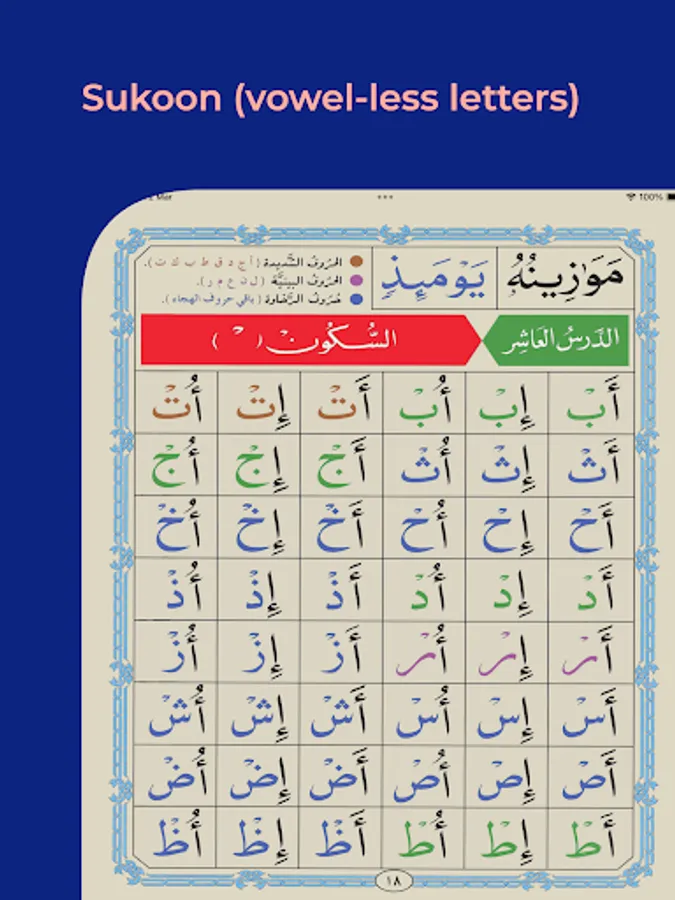 Sukoon (vowel-less letters)
Mar 100%
مَوَٰزِينُهُۥ يَوْمَئِذٍ
الحُرُوفُ الشَّدِيدة ( أ ج د ق ط ب ك ت ).
الحُرُوفُ البَيْنِيَّة ( ل ن ع م ر ).
حُرُوفُ الرَّخَاوة ( باقي حروف الهجاء ).
الدَّرسُ العَاشِر السُّكُونْ ( ْ )
أَبْ إِبْ أُبْ أَتْ إِتْ أُتْ
أَثْ إِثْ أُثْ أَجْ إِجْ أُجْ
أَحْ إِحْ أُحْ أَخْ إِخْ أُخْ
أَدْ إِدْ أُدْ أَذْ إِذْ أُذْ
أَرْ إِرْ أُرْ أَزْ إِزْ أُزْ
أَسْ إِسْ أُسْ أَشْ إِشْ أُشْ
أَصْ إِصْ أُصْ أَضْ إِضْ أُضْ
أَطْ إِطْ أُطْ أَظْ إِظْ أُظْ
١٨